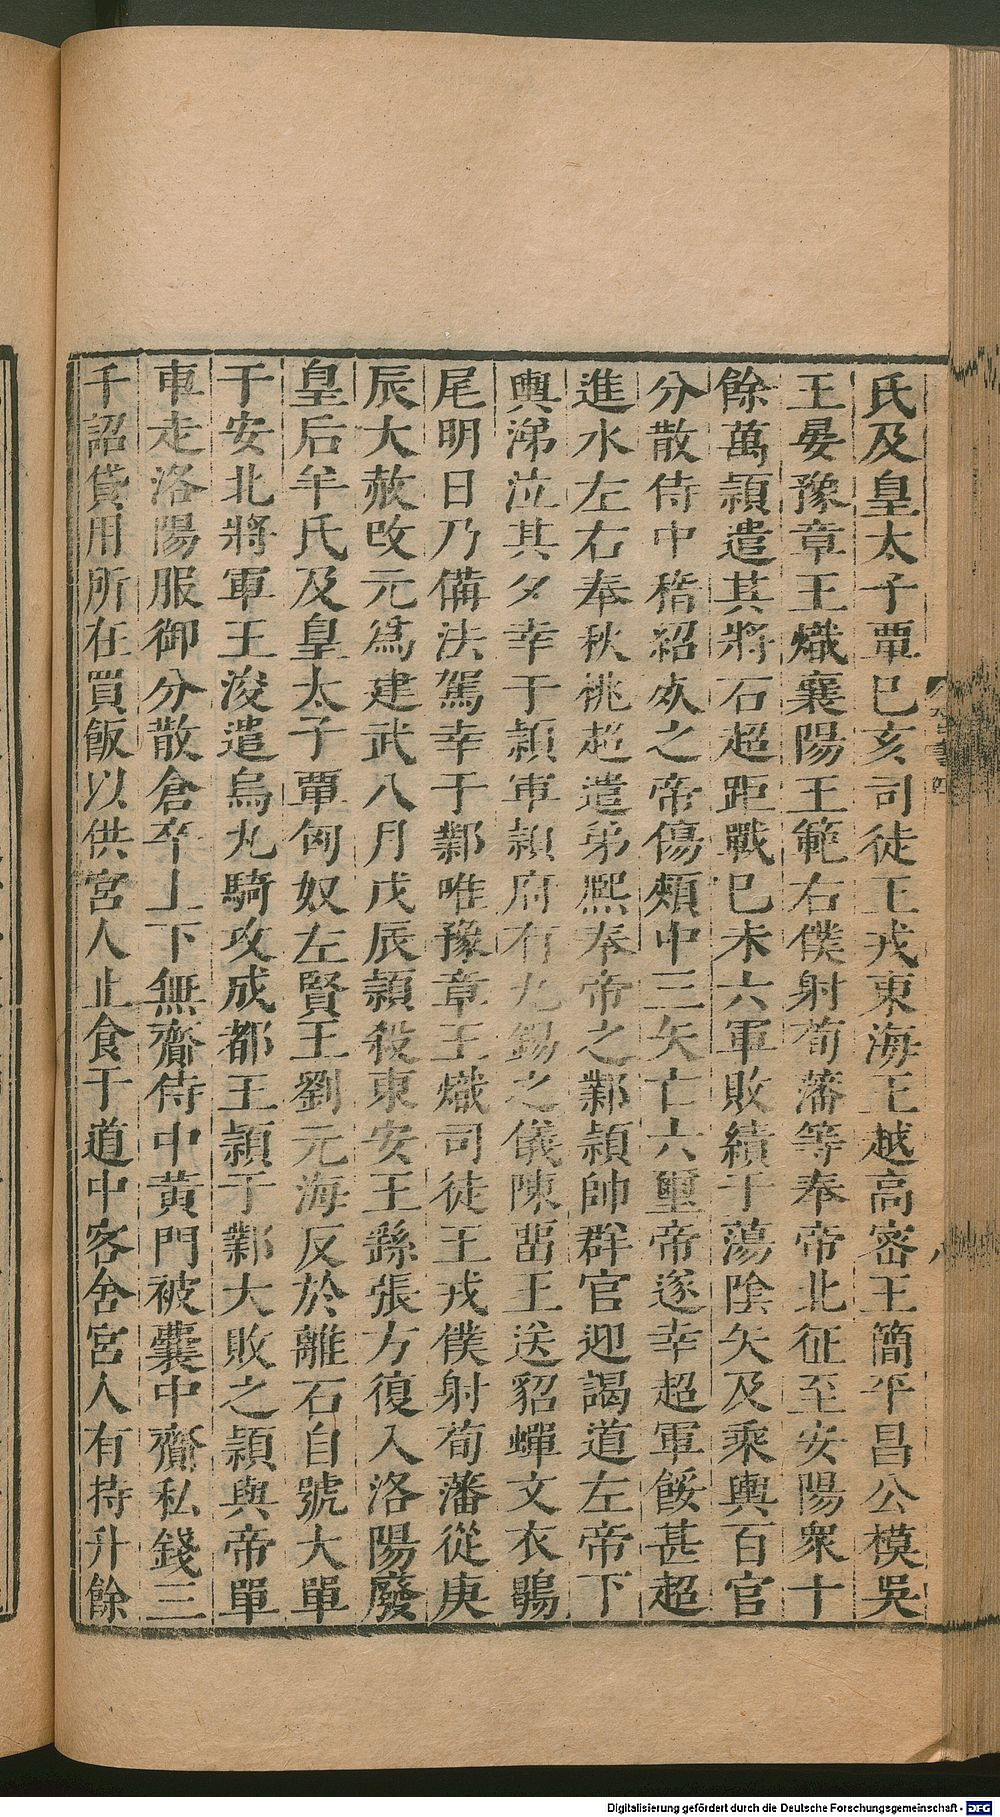 氏及皇太子覃巳亥司徒王戎東海王越高密王簡平昌公模吳
王晏豫章王熾襄陽王範右僕射荀藩等奉帝北征至安陽衆十
餘萬頴遣其將石超距戰巳未六軍敗績于蕩陰矢及乘輿百官
分散侍中嵇紹死之帝傷頰中三矢亡六璽帝遂幸超軍餒甚超
進水左右奉秋桃超遣弟熙奉帝之鄴頴帥群官迎謁道左帝下
輿涕泣其夕幸于頴軍頴府有九錫之儀陳畱王送貂蟬文衣鶡
尾明日乃備法駕幸于鄴唯豫章王熾司徒王戎僕射荀藩從庚
辰大赦改元爲建武八月戊辰頴殺東安王繇張方復入洛陽廢
皇后羊氏及皇太子覃匈奴左賢王劉元海反於離石自號大單
于安北將軍王浚遣烏丸騎攻成都王頴于鄴大敗之頴與帝單
車走洛陽服御分散倉卒上下無齎侍中黃門被囊中齎私錢三
千詔貸用所在買飯以供宮人止食于道中客舍宮人有持升餘
Digitalisierung gefördert durch die Deutsche Forschungsgemeinschaft - DFG